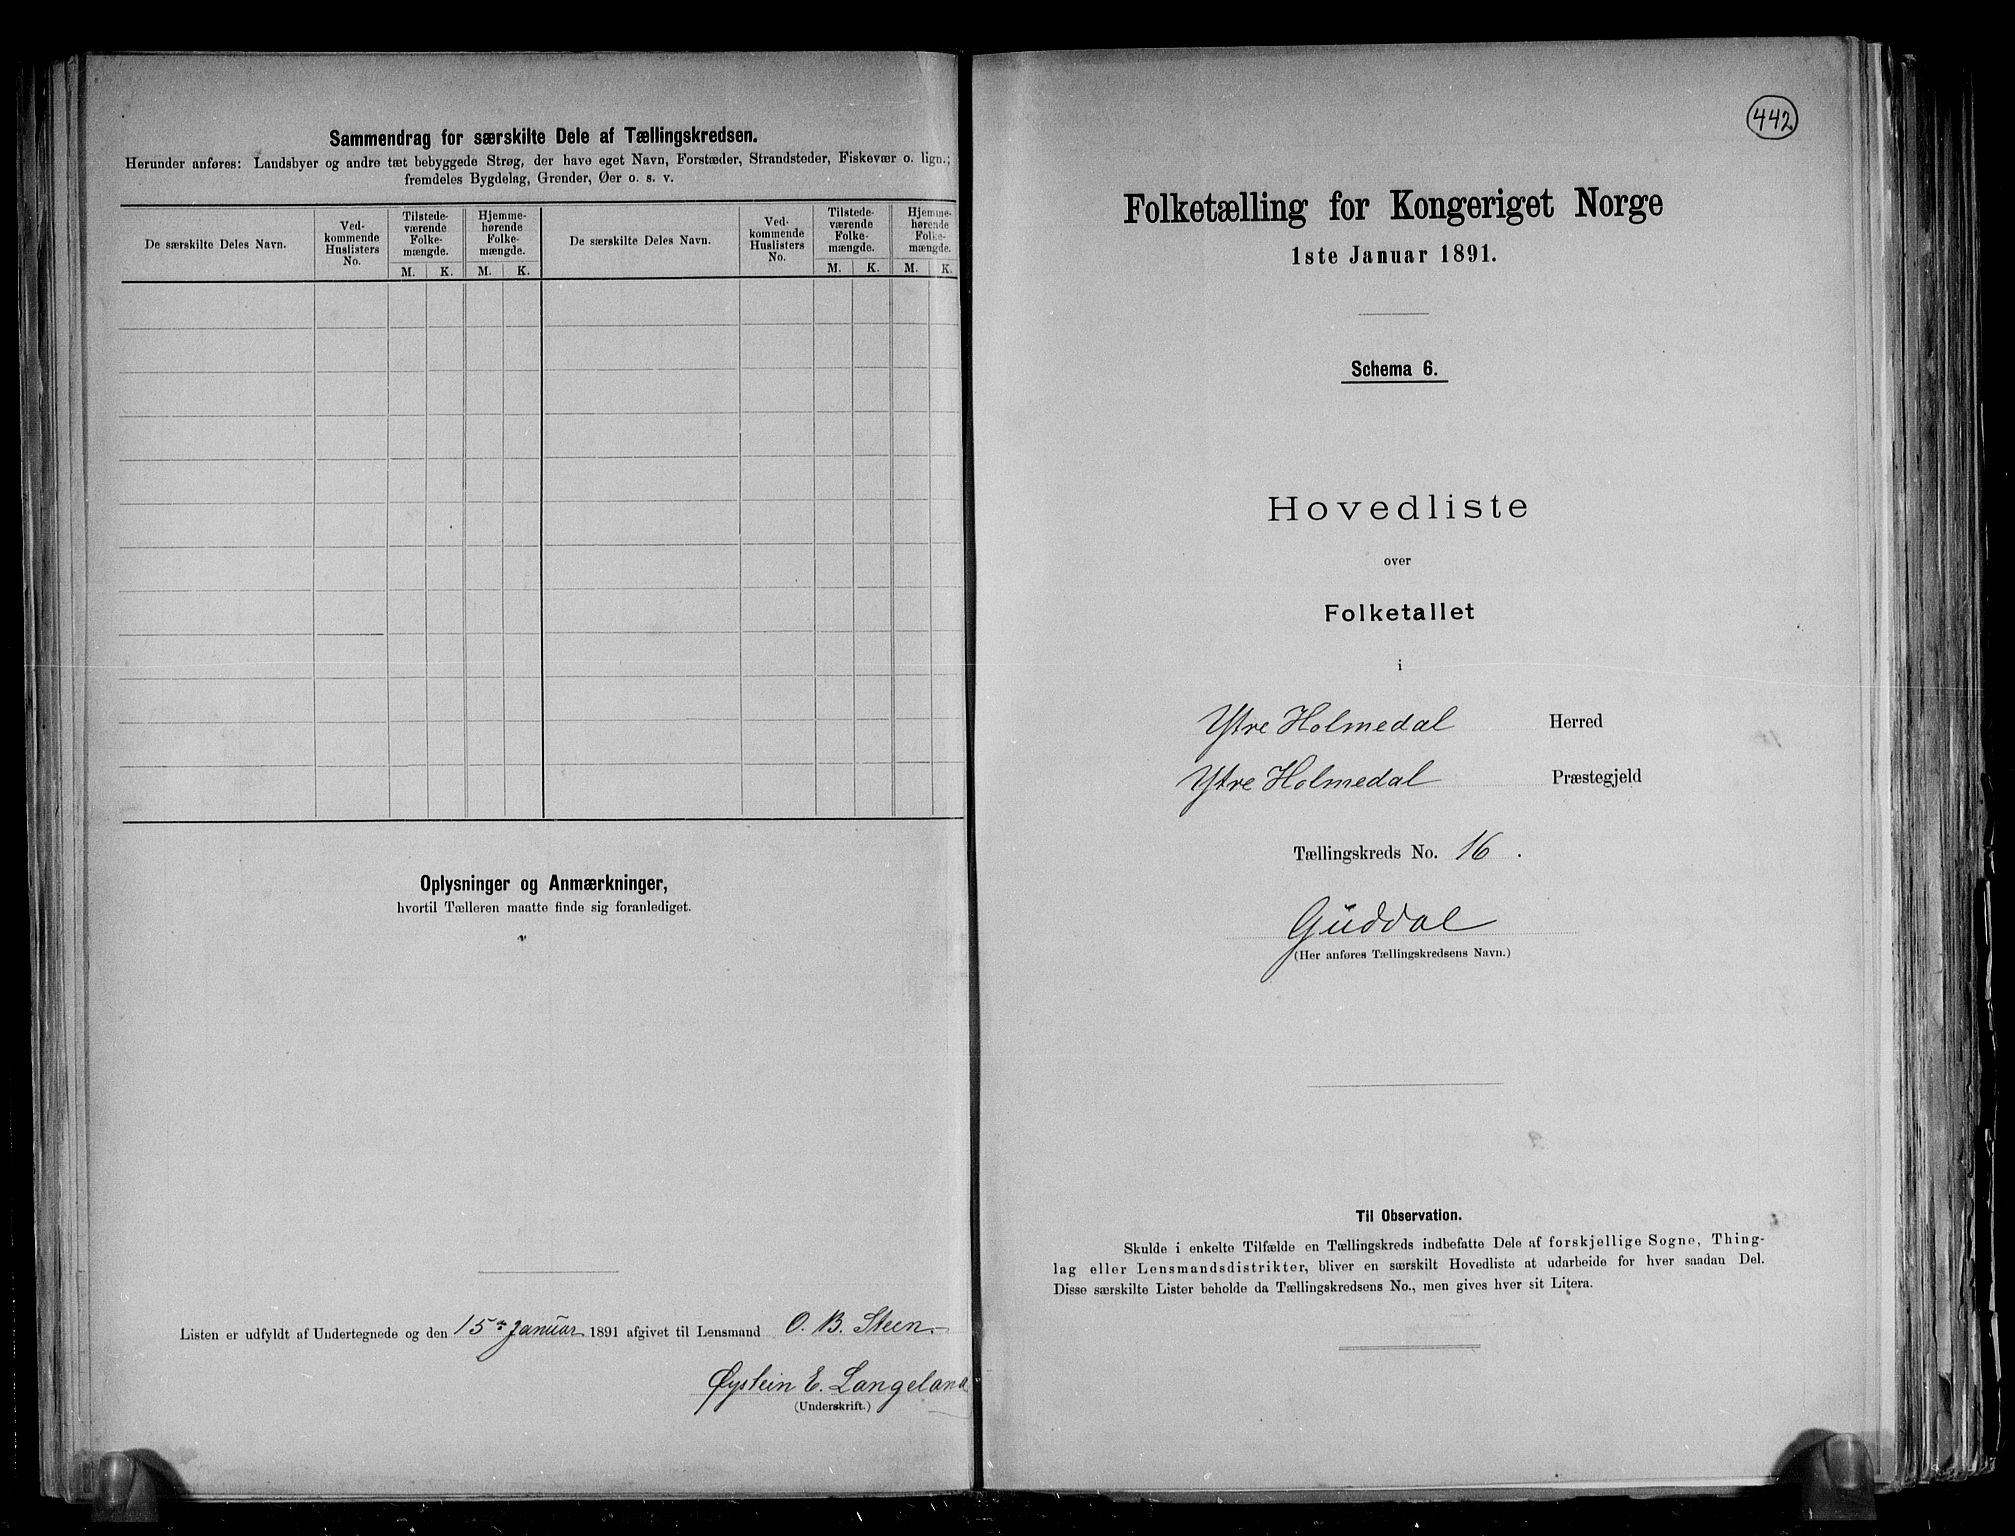 Sammendrag for særskilte Dele af Tællingskredsen.
Herunder anføres: Landsbyer og andre tæt bebyggede Strøg, der have eget Navn, Forstæder, Strandsteder, Fiskevær o. lign.;
fremdeles Bygdelag, Grender, Øer o. s. v.
De særskilte Deles Navn.
Ved-
kommende
Huslisters
No.
Tilstede-
værende
Folke-
mængde.
M. K.
Hjemme-
hørende
Folke-
mængde.
M. K.
De særskilte Deles Navn.
Ved-
kommende
Huslisters
No.
Tilstede-
værende
Folke-
mængde.
M. K.
Hjemme-
hørende
Folke-
mængde.
M. K.
Oplysninger og Anmærkninger,
hvortil Tælleren maatte finde sig foranlediget.
Listen er udfyldt af Undertegnede og den 15de Januar 1891 afgivet til Lensmand O. B. Steen.
Øystein E. Langeland
(Underskrift.)
442
Folketælling for Kongeriget Norge
1ste Januar 1891.
Schema 6.
Hovedliste
over
Folketallet
i
Ytre Holmedal Herred
Ytre Holmedal Præstegjeld
Tællingskreds No. 16.
Guddal
(Her anføres Tællingskredsens Navn.)
Til Observation.
Skulde i enkelte Tilfælde en Tællingskreds indbefatte Dele af forskjellige Sogne, Thing-
lag eller Lensmandsdistrikter, bliver en særskilt Hovedliste at udarbeide for hver saadan Del.
Disse særskilte Lister beholde da Tællingskredsens No., men gives hver sit Litera.